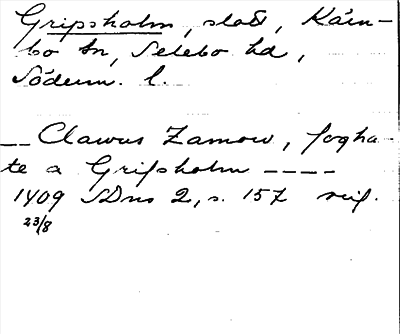 Gripsholm, slott, Kärn-
bo sn, Selebo hd,
Söderm. l.
-- Clawus Zamow, fogha-
te a Gripsholm ----
1409 SDns 2, s. 157
23/8